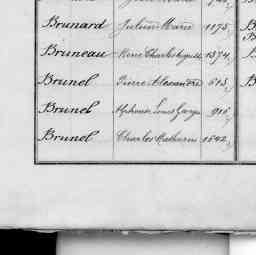 Brunard Julien Marie 1175
Bruneau René Charles 1374
Brunel Pierre Alexandre 513
Brunel Alphonse Louis Georges 916
Brunel Charles Catherin 1542